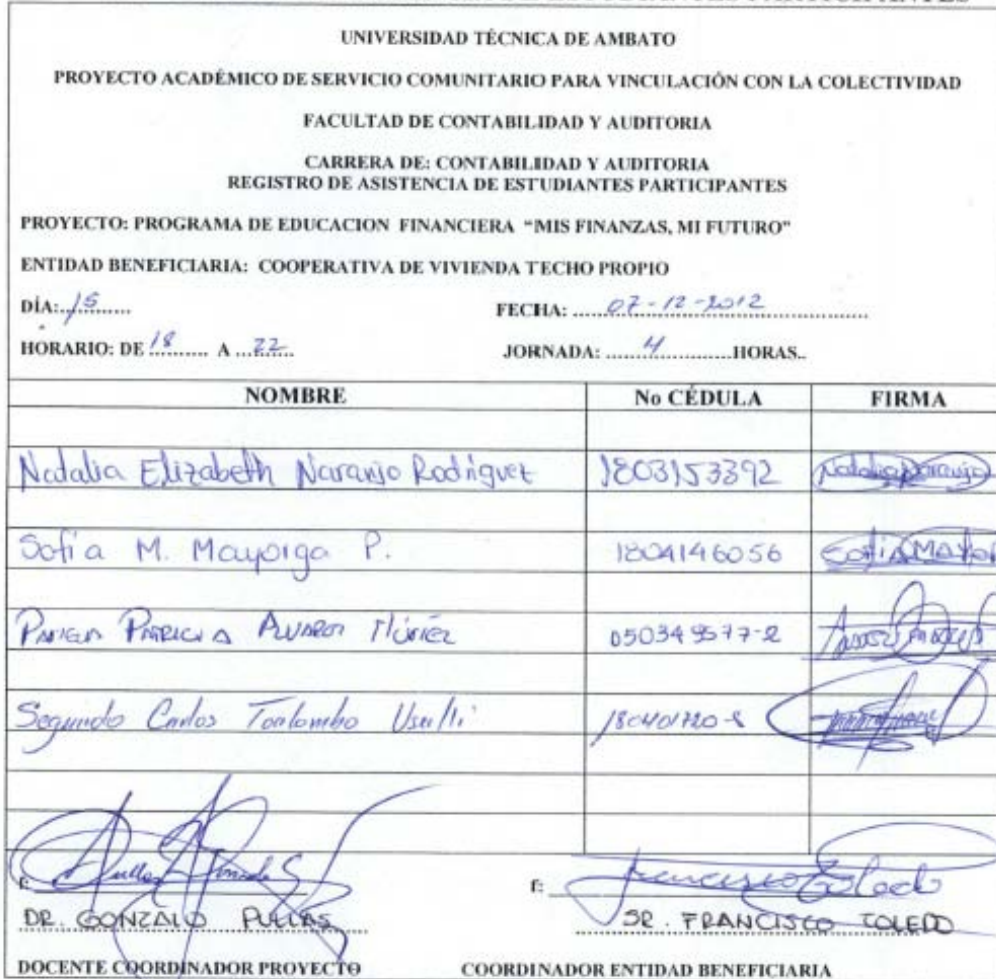 UNIVERSIDAD TÉCNICA DE AMBATO
PROYECTO ACADÉMICO DE SERVICIO COMUNITARIO PARA VINCULACIÓN CON LA COLECTIVIDAD
FACULTAD DE CONTABILIDAD Y AUDITORIA
CARRERA DE: CONTABILIDAD Y AUDITORIA
REGISTRO DE ASISTENCIA DE ESTUDIANTES PARTICIPANTES
PROYECTO: PROGRAMA DE EDUCACION FINANCIERA "MIS FINANZAS, MI FUTURO"
ENTIDAD BENEFICIARIA: COOPERATIVA DE VIVIENDA TECHO PROPIO
DÍA: 15 FECHA: 07-12-2012
HORARIO: DE 18 A 22 JORNADA: 4 HORAS..
NOMBRE No CÉDULA FIRMA
Natalia Elizabeth Naranjo Rodriguez 1803153392 Natalia Naranjo
Sofia M. Mayorga P. 1804146056 Sofia
PATRICIA 050349577-2
Segundo Carlos
F: F: Francisco Toledo
DR. GONZALO PULLAS SR. FRANCISCO TOLEDO
DOCENTE COORDINADOR PROYECTO COORDINADOR ENTIDAD BENEFICIARIA